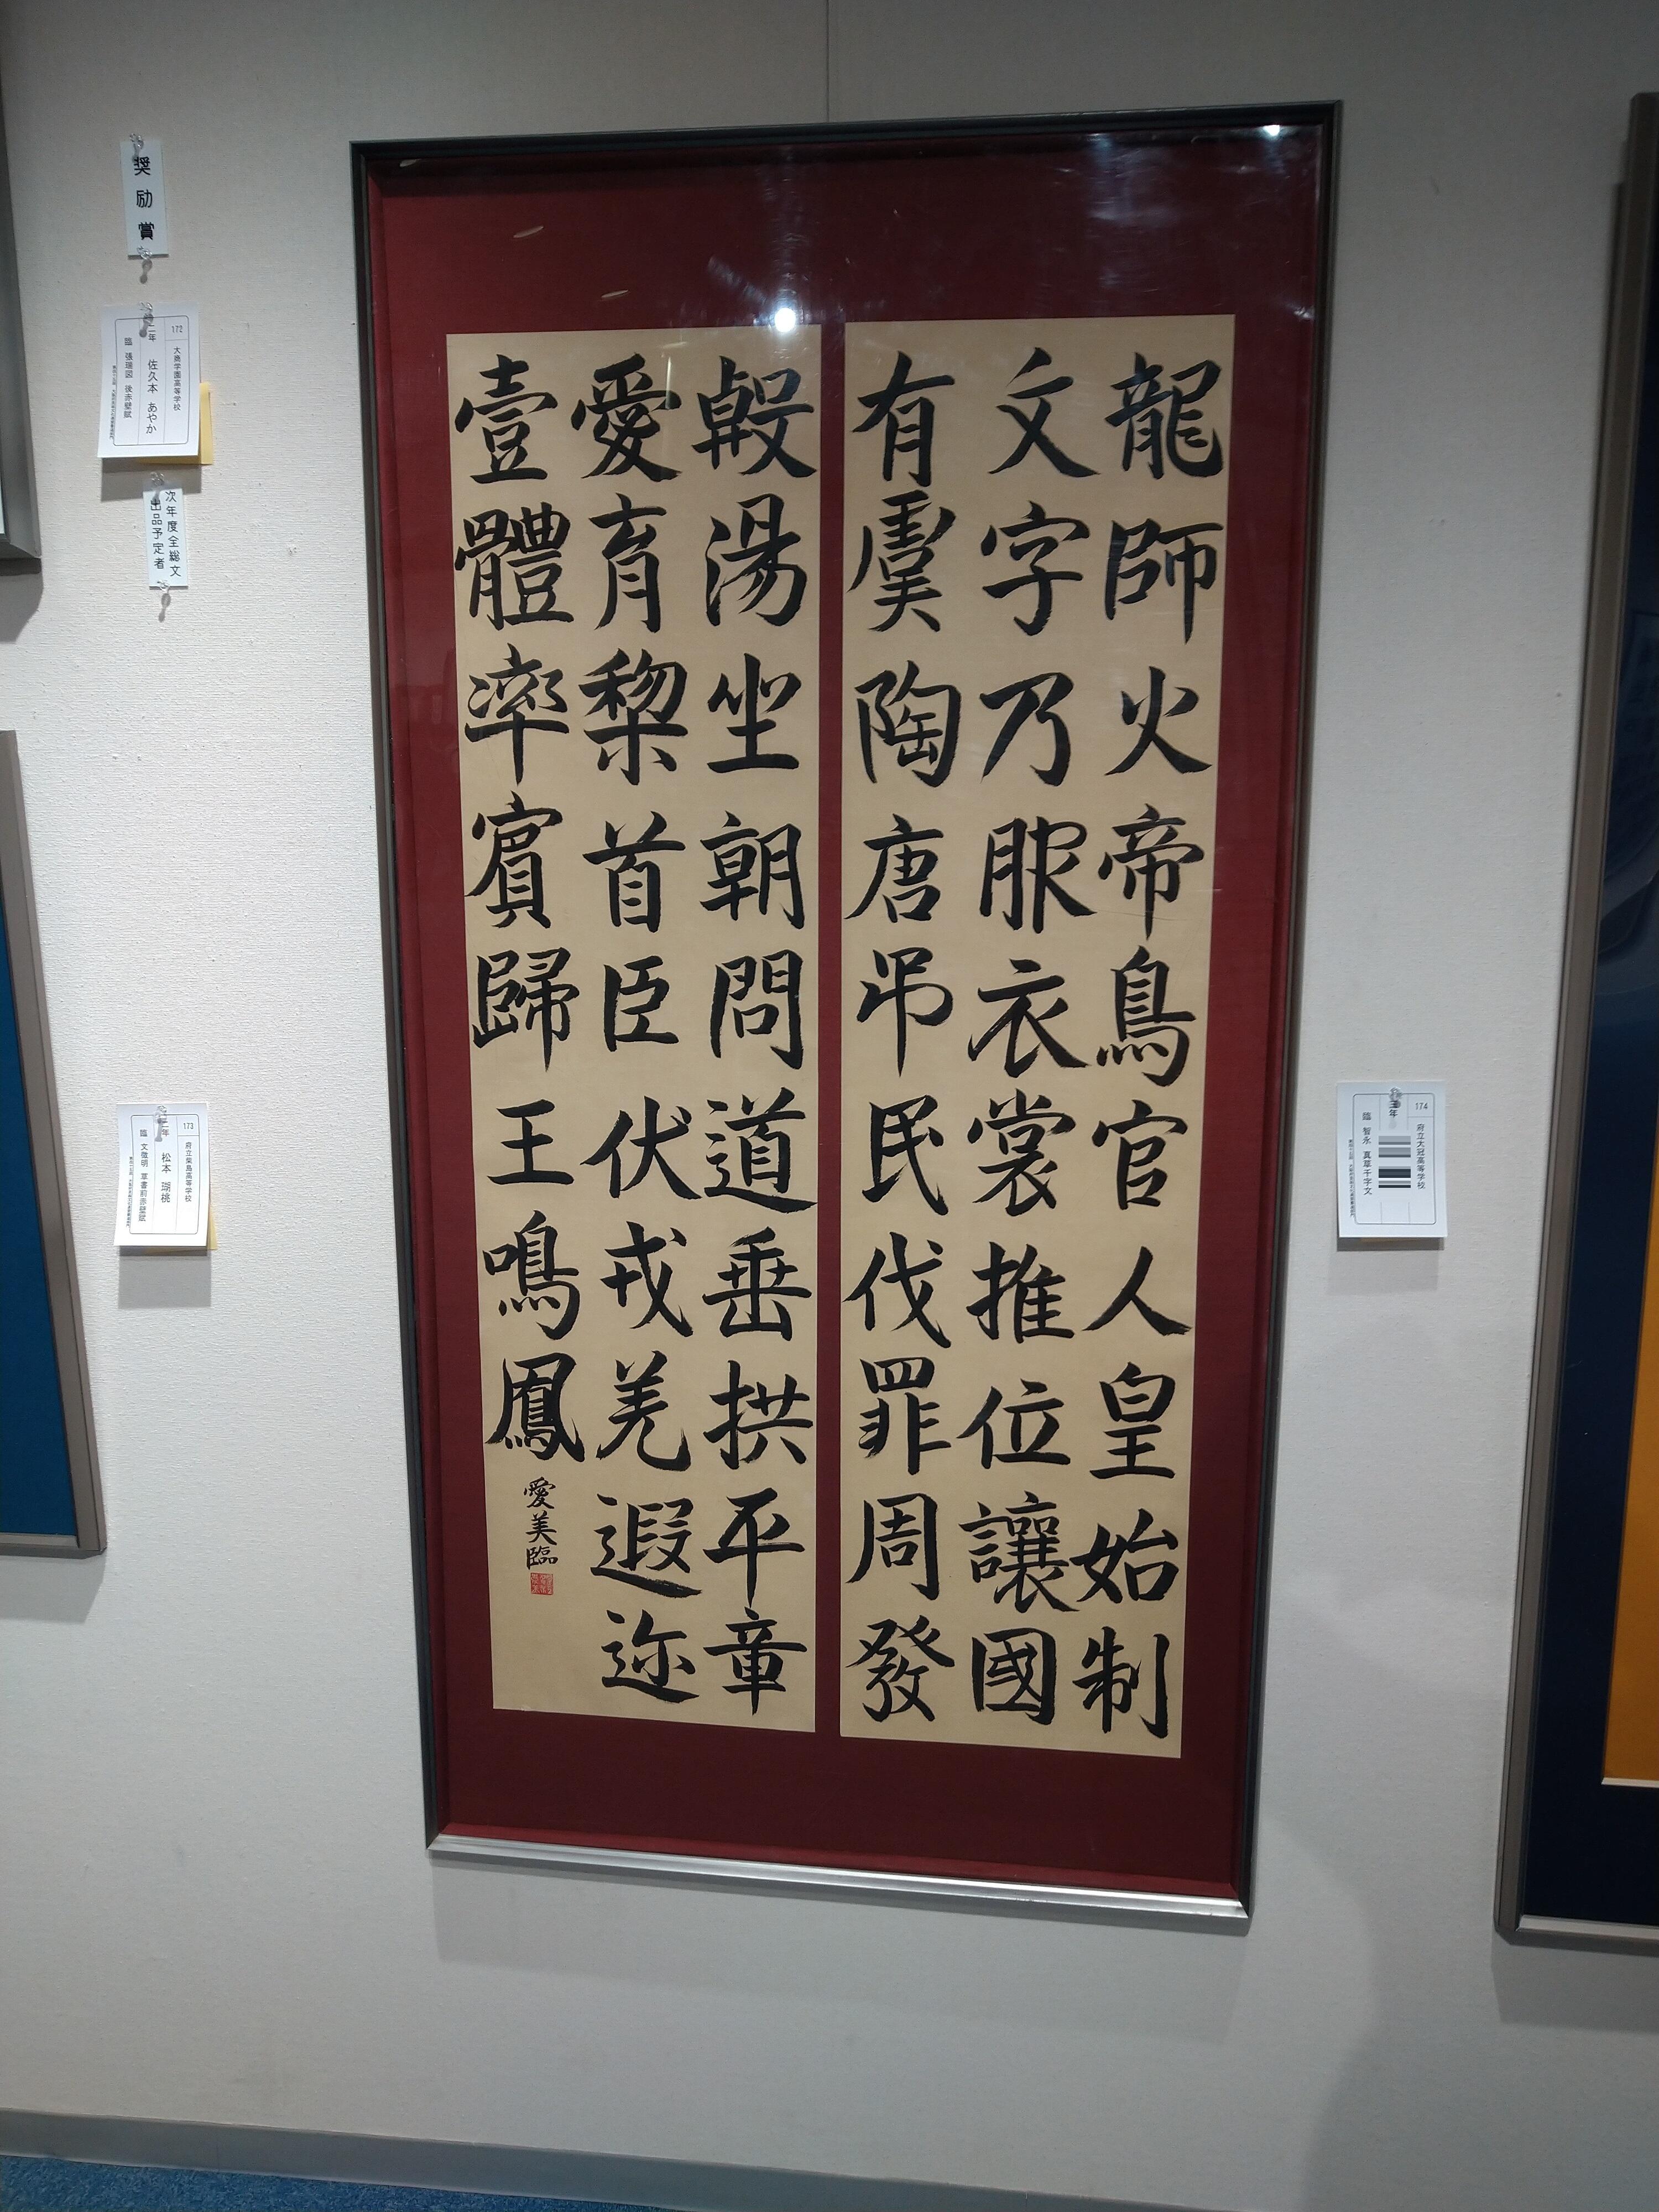 龍師火帝鳥官人皇始制
文字乃服衣裳推位讓國
有虞陶唐吊民伐罪周發
殷湯坐朝問道垂拱平章
愛育黎首臣伏戎羌遐迩
壹體率賓歸王鳴鳳
愛美臨
奨励賞
172
大商学園高等学校
二年 佐久本 あやか
臨 張瑞図 後赤壁賦
次年度全総文
出品予定者
173
府立柴島高等学校
二年 松本 瑚桃
臨 文徴明 草書前赤壁賦
174
府立大冠高等学校
三年
臨 智永 真草千字文